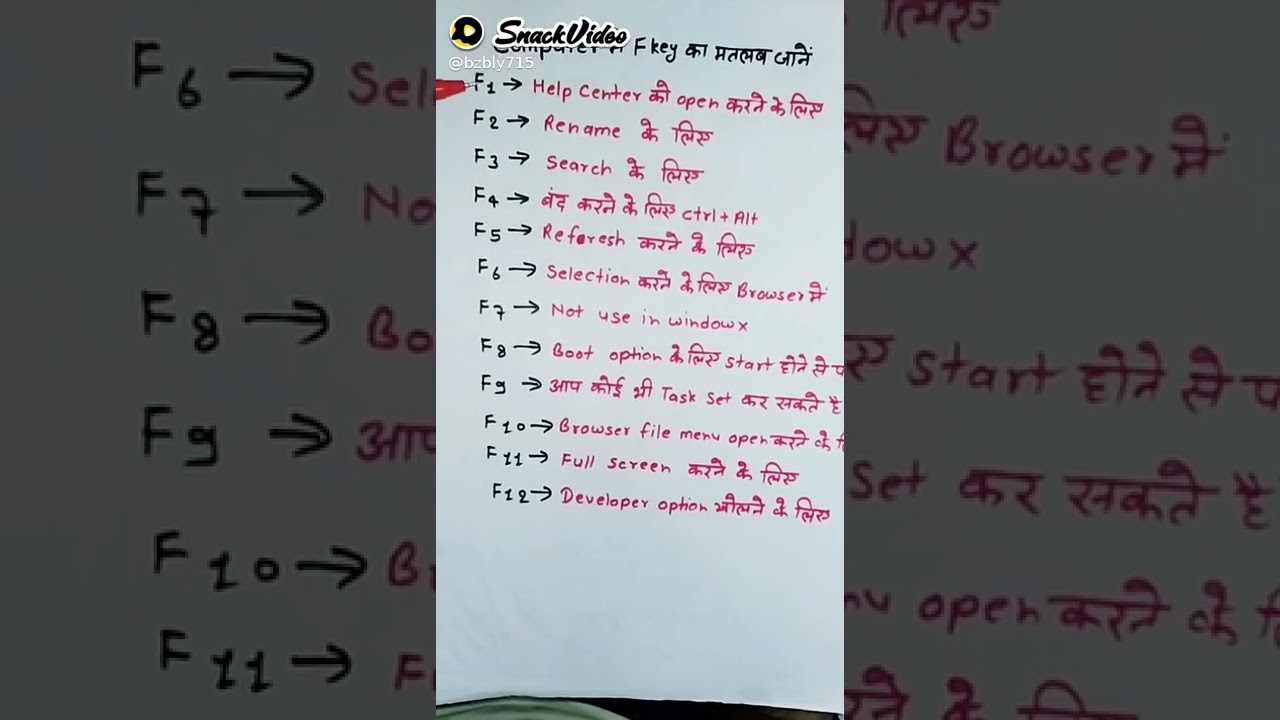 SnackVideo
@bzbly715
Computer में F key का मतलब जानें
F1 → Help Center को open करने के लिए
F2 → Rename के लिए
F3 → Search के लिए
F4 → बंद करने के लिए Ctrl + Alt
F5 → Referesh करने के लिए
F6 → Selection करने के लिए Browser में
F7 → Not use in window x
F8 → Boot option के लिए start होने से प
F9 → आप कोई भी Task Set कर सकते है
F10 → Browser file menu open करने के लि
F11 → Full screen करने के लिए
F12 → Developer option खोलने के लिए